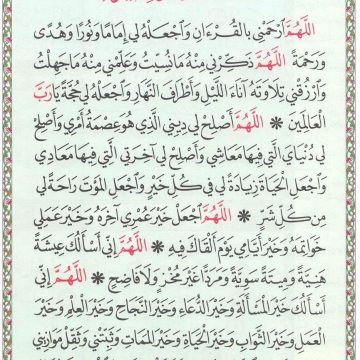 اللَّهُمَّ ارْحَمْنِي بِالقُرْءَانِ وَاجْعَلْهُ لِي إِمَامًا وَنُورًا وَهُدًى
وَرَحْمَةً اللَّهُمَّ ذَكِّرْنِي مِنْهُ مَا نُسِّيتُ وَعَلِّمْنِي مِنْهُ مَا جَهِلْتُ
وَارْزُقْنِي تِلَاوَتَهُ آنَاءَ اللَّيْلِ وَأَطْرَافَ النَّهَارِ وَاجْعَلْهُ لِي حُجَّةً يَا رَبَّ
العَالَمِينَ * اللَّهُمَّ أَصْلِحْ لِي دِينِي الَّذِي هُوَ عِصْمَةُ أَمْرِي وَأَصْلِحْ
لِي دُنْيَايَ الَّتِي فِيهَا مَعَاشِي وَأَصْلِحْ لِي آخِرَتِي الَّتِي فِيهَا مَعَادِي
وَاجْعَلِ الْحَيَاةَ زِيَادَةً لِي فِي كُلِّ خَيْرٍ وَاجْعَلِ الْمَوْتَ رَاحَةً لِي
مِنْ كُلِّ شَرٍّ * اللَّهُمَّ اجْعَلْ خَيْرَ عُمْرِي آخِرَهُ وَخَيْرَ عَمَلِي
خَوَاتِمَهُ وَخَيْرَ أَيَّامِي يَوْمَ أَلْقَاكَ فِيهِ * اللَّهُمَّ إِنِّي أَسْأَلُكَ عِيشَةً
هَنِيَّةً وَمِيتَةً سَوِيَّةً وَمَرَدًّا غَيْرَ مُخْزٍ وَلَا فَاضِحٍ * اللَّهُمَّ إِنِّي
أَسْأَلُكَ خَيْرَ الْمَسْأَلَةِ وَخَيْرَ الدُّعَاءِ وَخَيْرَ النَّجَاحِ وَخَيْرَ الْعِلْمِ وَخَيْرَ
الْعَمَلِ وَخَيْرَ الثَّوَابِ وَخَيْرَ الْحَيَاةِ وَخَيْرَ الْمَمَاتِ وَثَبِّتْنِي وَثَقِّلْ مَوَازِينِي